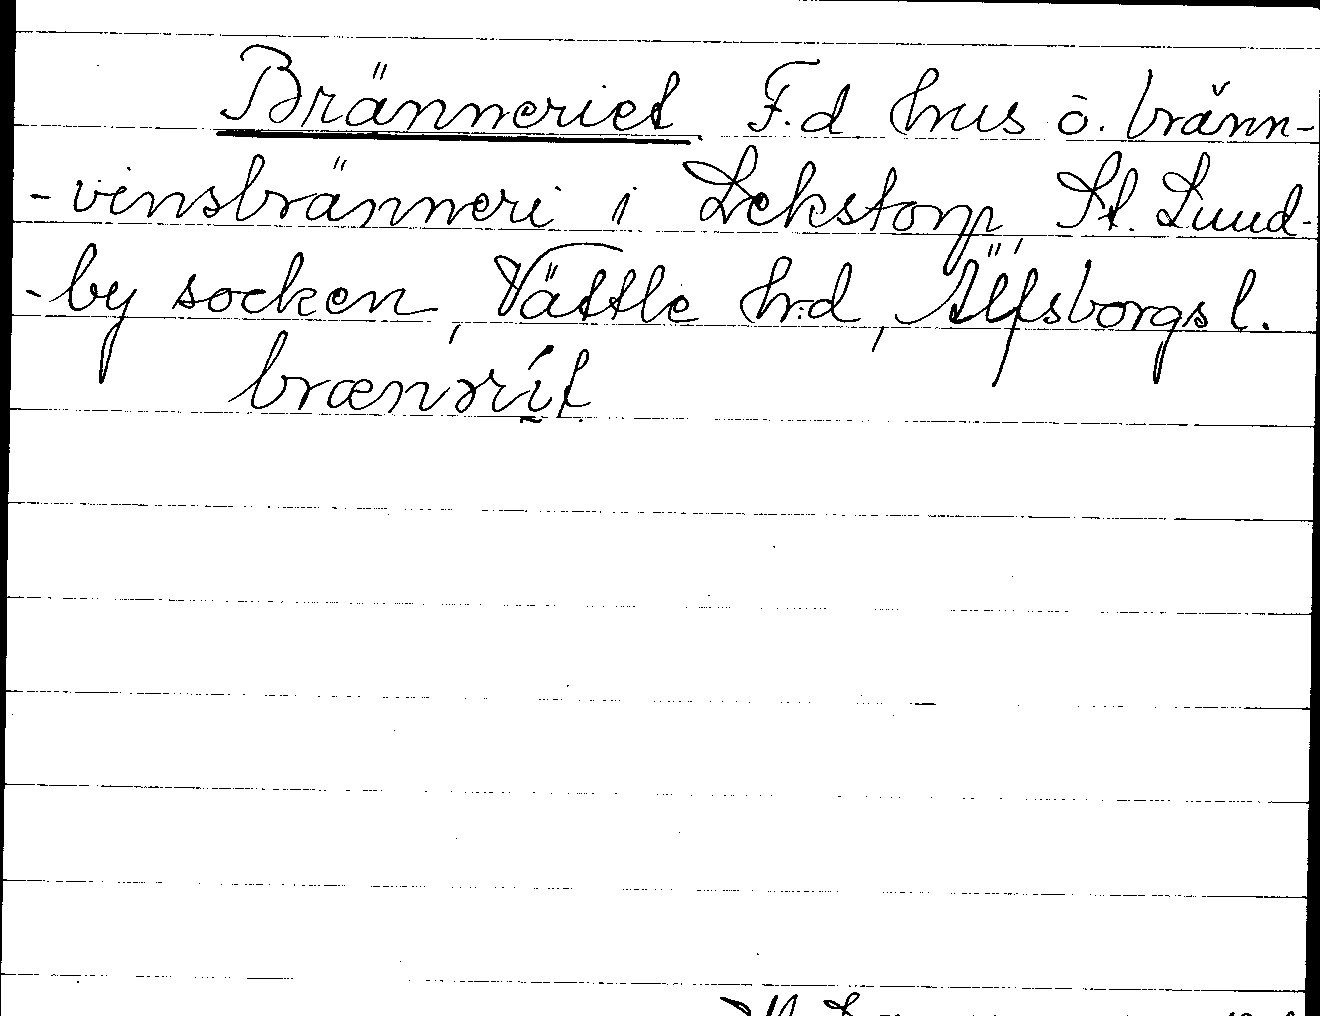 Bränneriet. F.d. hus o. bränn-
-vinsbränneri i Lekstorp, St. Lund-
-by socken, Vättle h:d, Älfsborgs l.
brænrít